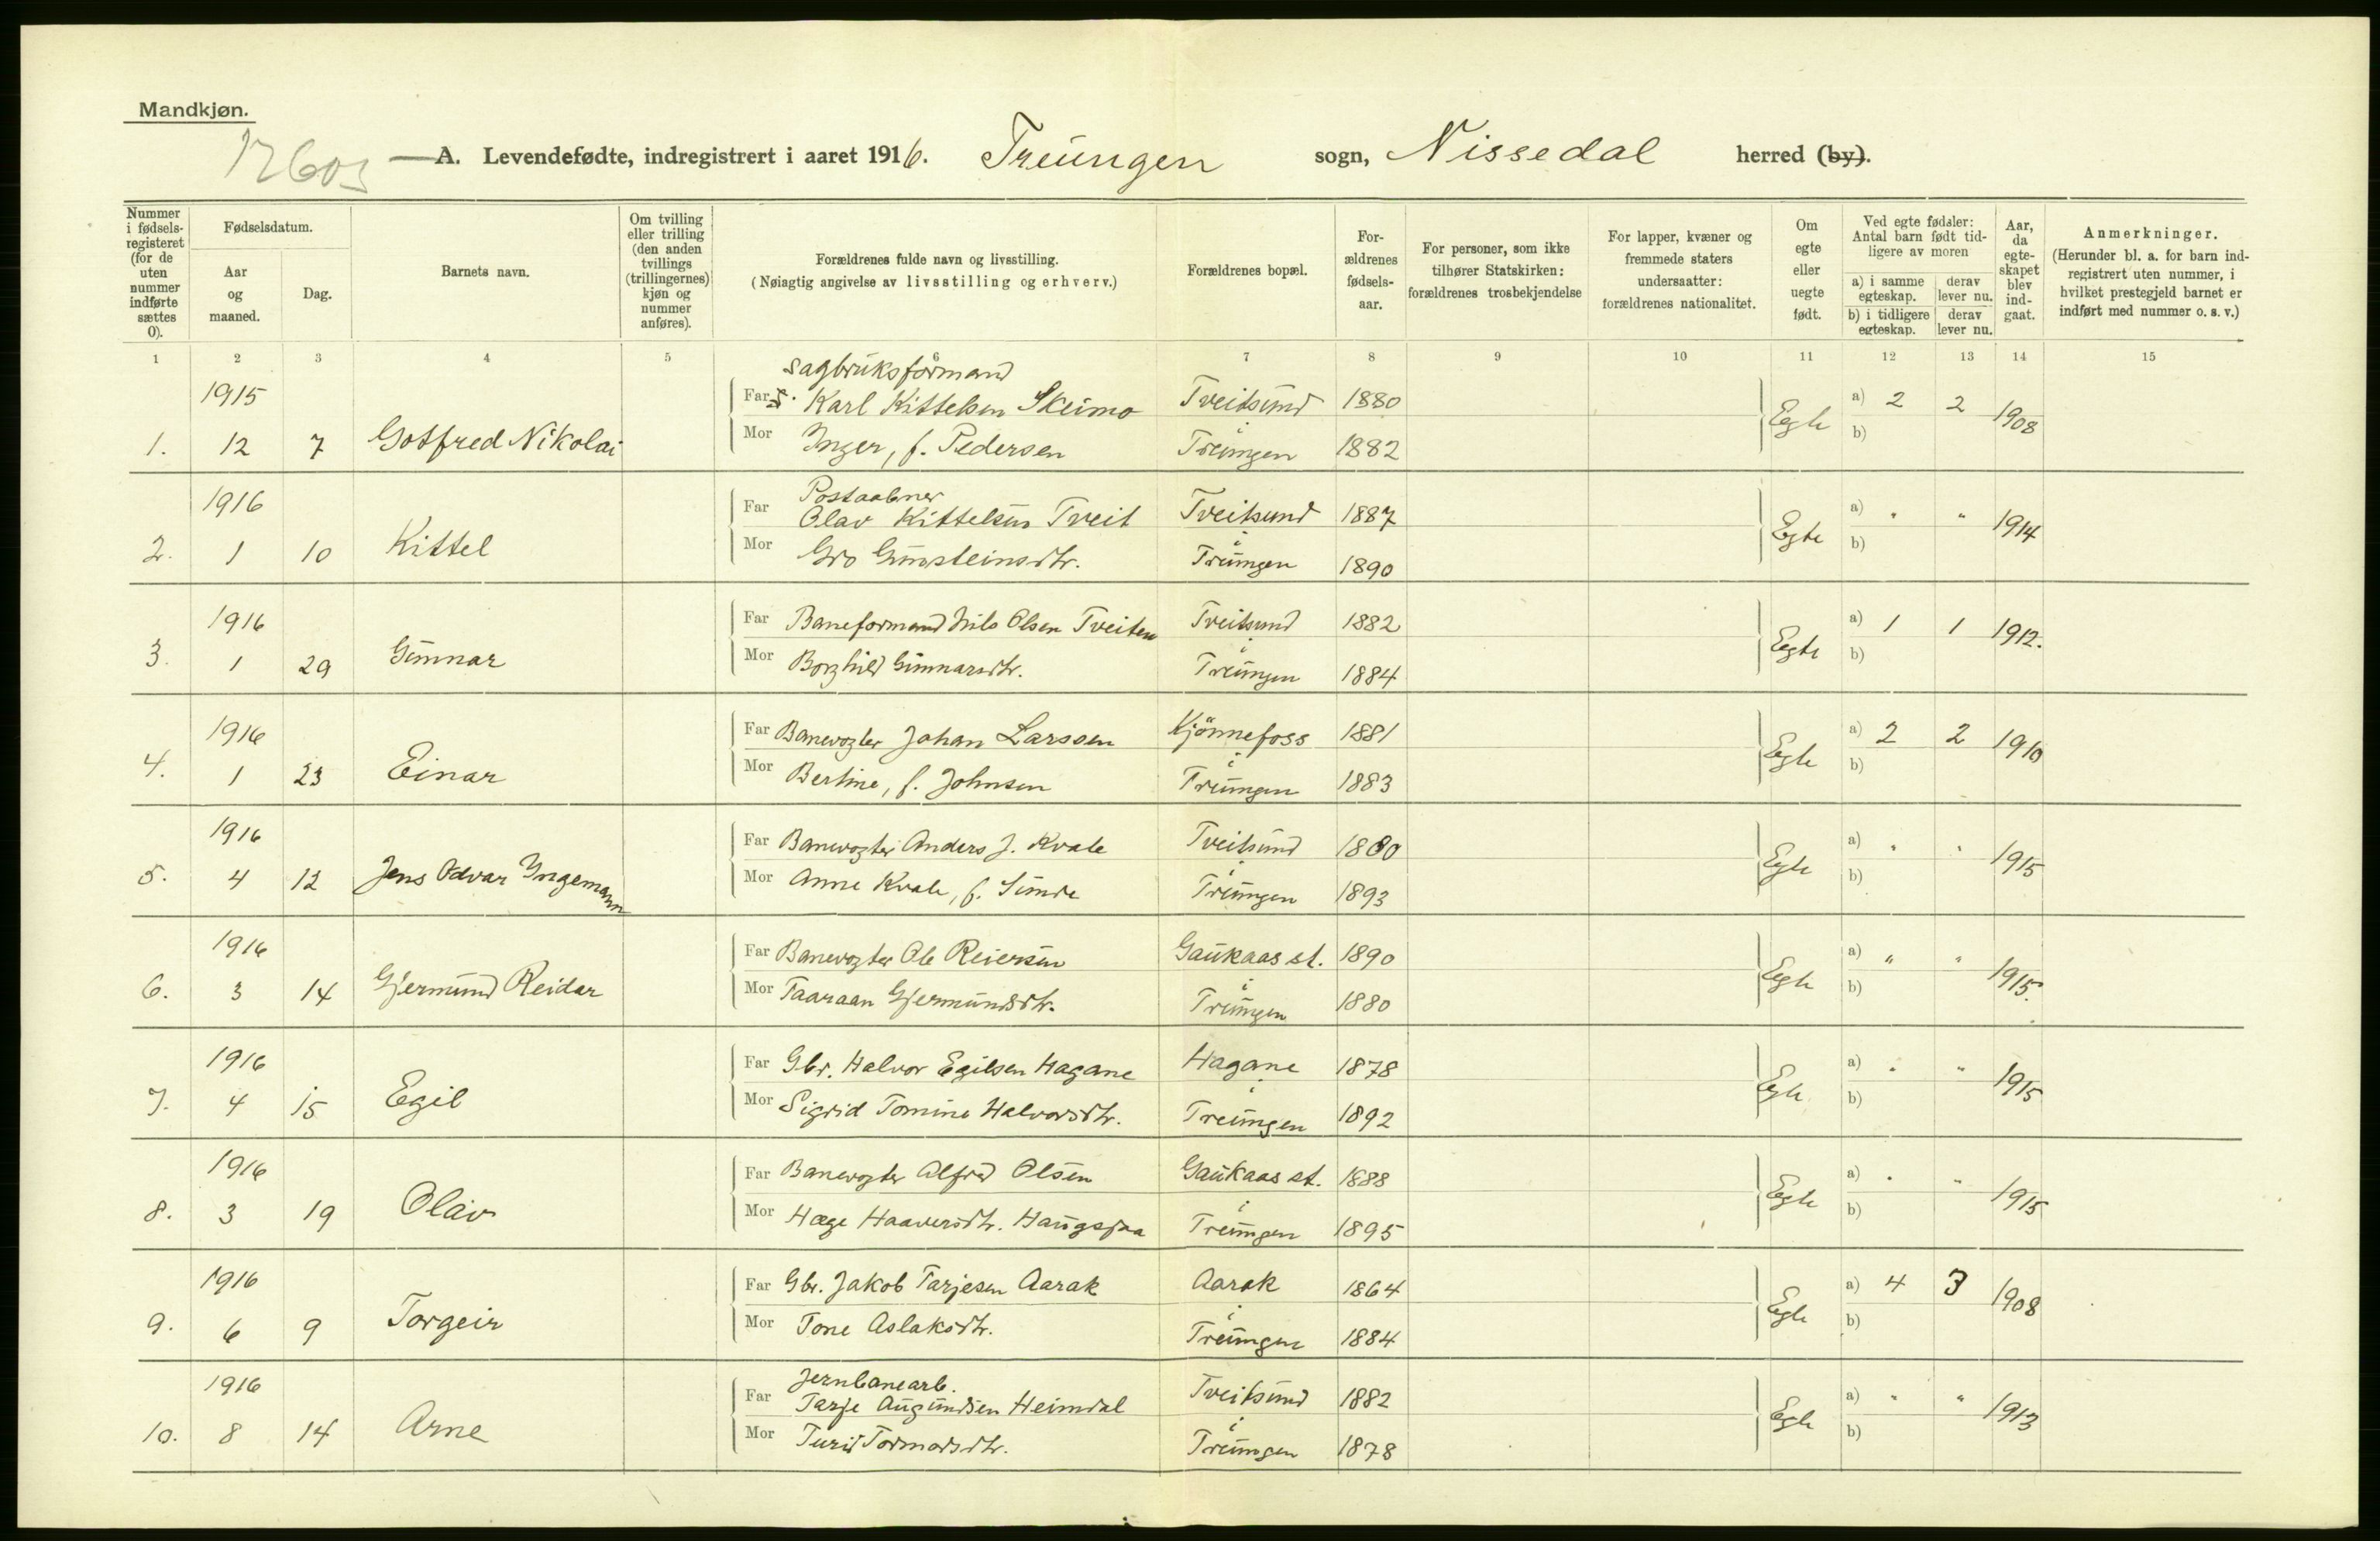 Mandkjøn.
A. Levendefødte, indregistrert i aaret 1916. Treungen sogn, Nissedal herred (by).
Nummer i fødsels-registeret (for de uten nummer indførte sættes 0).
Fødselsdatum.
Aar og maaned.
Dag.
Barnets navn.
Om tvilling eller trilling (den anden tvillings (trillingernes) kjøn og nummer anføres).
Forældrenes fulde navn og livsstilling.
(Nøiagtig angivelse av livsstilling og erhverv.)
Forældrenes bopæl.
For-ældrenes fødsels-aar.
For personer, som ikke tilhører Statskirken: forældrenes trosbekjendelse
For lapper, kvæner og fremmede staters undersaatter: forældrenes nationalitet.
Om egte eller uegte født.
Ved egte fødsler: Antal barn født tid-ligere av moren
a) i samme egteskap. derav lever nu.
b) i tidligere egteskap. derav lever nu.
Aar, da egte-skapet blev ind-gaat.
Anmerkninger.
(Herunder bl. a. for barn ind-registrert uten nummer, i hvilket prestegjeld barnet er indført med nummer o. s. v.)
1 2 3 4 5 6 7 8 9 10 11 12 13 14 15
Sagbruksformand
1915 Far Karl Kittelsen Skeimo Tveitsund 1880 a) 2 2
1. 12 7 Gotfred Nikolai Mor Inger, f. Pedersen i Treungen 1882 Egte b) 1908
Postaabner
1916 Far Olav Kittelsen Tveit Tveitsund 1887 a) " "
2. 1 10 Kittel Mor Gro Gunsteinsdtr. i Treungen 1890 Egte b) 1914
1916 Far Baneformand Nils Olsen Tveiten Tveitsund 1882 a) 1 1
3. 1 29 Gunnar Mor Borghild Gunnarsdtr. i Treungen 1884 Egte b) 1912.
1916 Far Banevogter Johan Larssen Kjönnefoss 1881 a) 2 2
4. 1 23 Einar Mor Bertine, f. Johnsen i Treungen 1883 Egte b) 1910
1916 Far Banevogter Anders J. Kvale Tveitsund 1880 a) " "
5. 4 12 Jens Odvar Ingemann Mor Anne Kvale, f. Sunde i Treungen 1893 Egte b) 1915
1916 Far Banevogter Ole Reiersen Gaukaas st. 1890 a) " "
6. 3 14 Gjermund Reidar Mor Taaraan Gjermundsdtr. i Treungen 1880 Egte b) 1915.
1916 Far Gbr. Halvor Egilsen Hagane Hagane 1878 a) " "
7. 4 15 Egil Mor Sigrid Tomine Halvorsdtr. i Treungen 1892 Egte b) 1915
1916 Far Banevogter Alfred Olsen Gaukaas st. 1888 a) " "
8. 3 19 Olav Mor Hæge Haaversdtr. Haugsjaa i Treungen 1895 Egte b) 1915
1916 Far Gbr. Jakob Tarjesen Aarak Aarak 1864 a) 4 3
9. 6 9 Torgeir Mor Tone Aslaksdtr. i Treungen 1884 Egte b) 1908
Jernbanearb.
1916 Far Tarje Augundsen Heimdal Tveitsund 1882 a) " "
10. 8 14 Arne Mor Turid Tormodsdtr. i Treungen 1878 Egte b) 1913